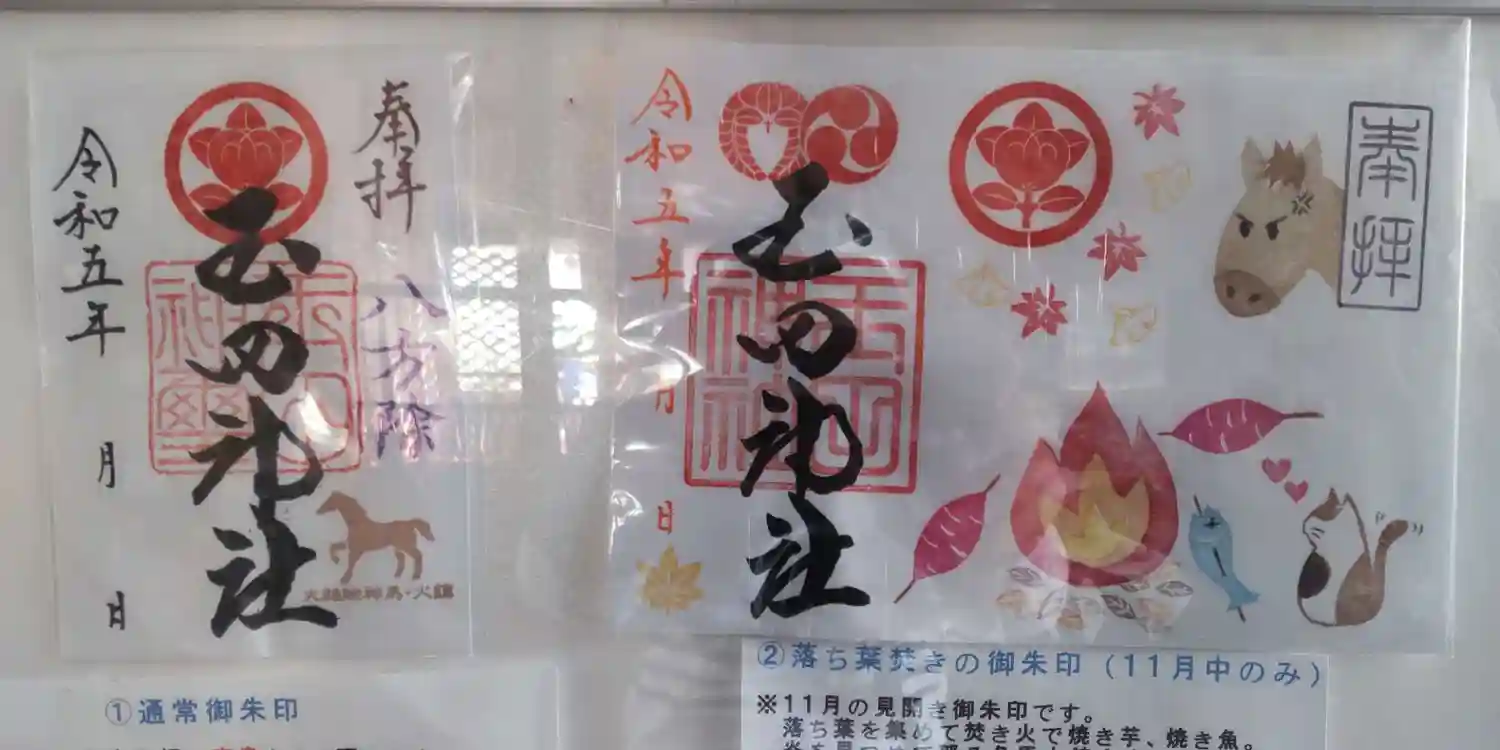 奉拝
八方除
玉田神社
令和五年
月
日
①通常御朱印
奉拝
玉田神社
令和五年
月
日
②落ち葉焚きの御朱印(11月中のみ)
※11月の見開き御朱印です。
落ち葉を集めて焚き火で焼き芋、焼き魚。